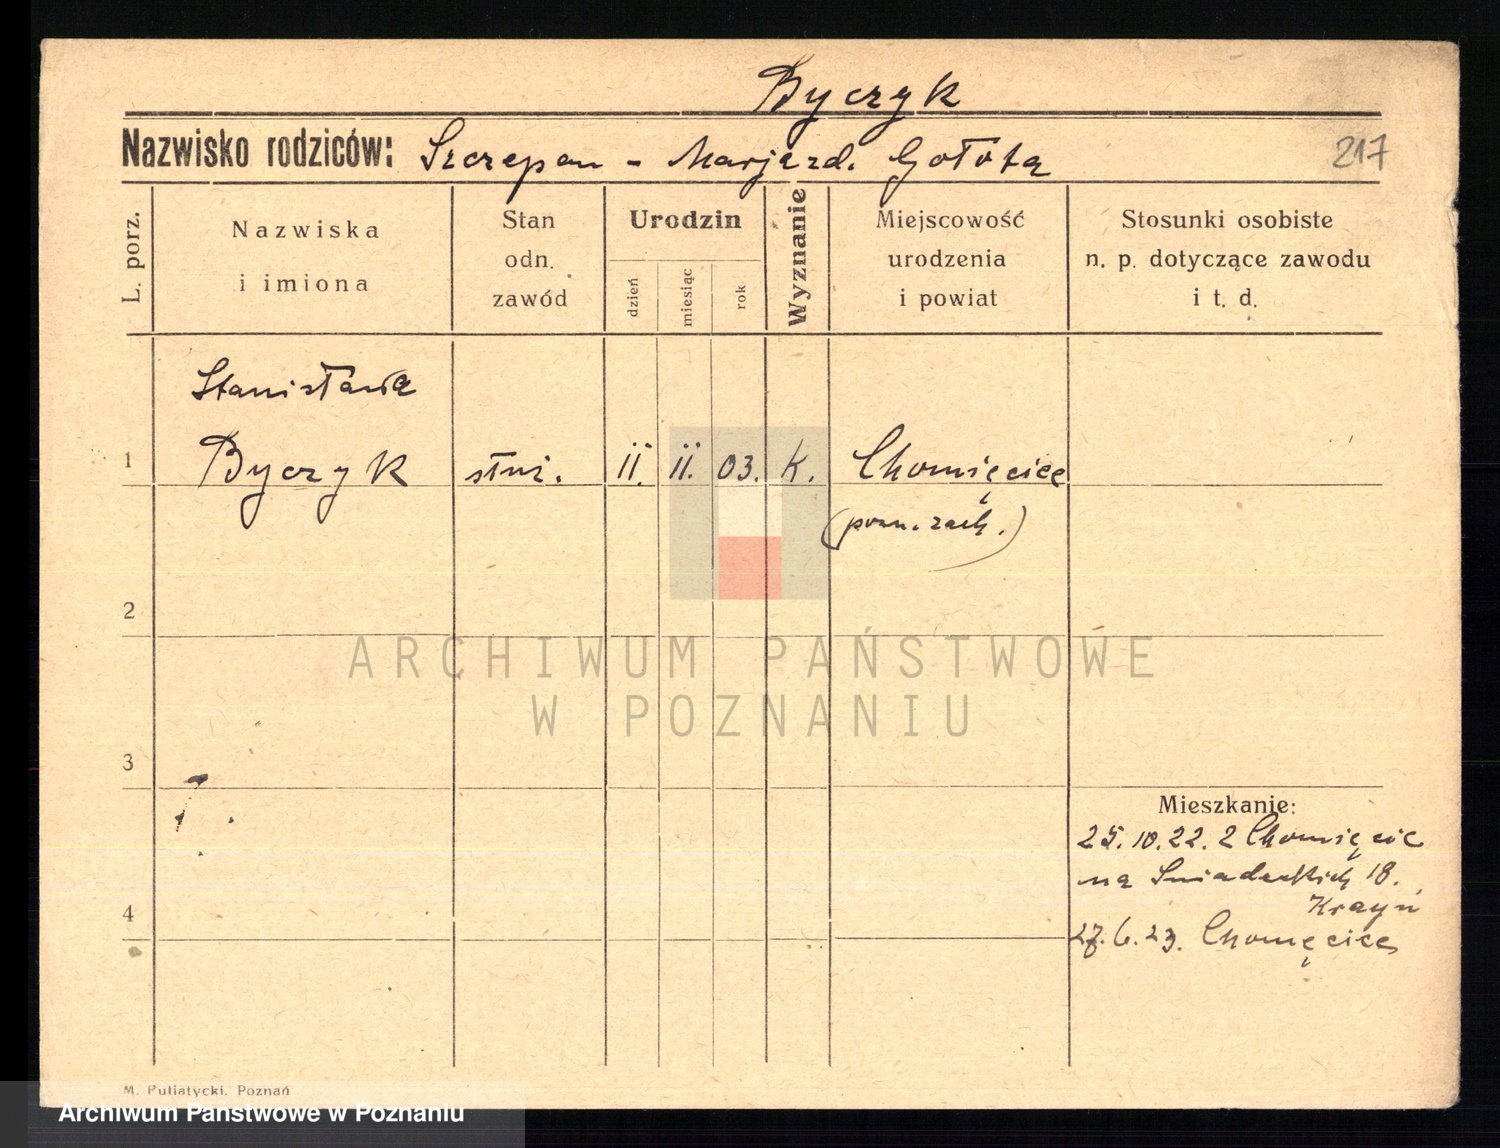 Byczyk
Nazwisko rodziców: Szczepan - Marja zd. Gołota
217
L. porz.
Nazwiska
i imiona
Stan
odn.
zawód
Urodzin
dzień
miesiąc
rok
Wyznanie
Miejscowość
urodzenia
i powiat
Stosunki osobiste
n. p. dotyczące zawodu
i t. d.
Stanisława
1 Byczyk służ. 11. 11. 03. K. Chomięcice
(pozn. zach.)
2
ARCHIWUM PAŃSTWOWE
W POZNANIU
3
Mieszkanie:
25.10.22. z Chomięcic
na Śniadeckich 18.
4
27.6.23. Chomęcice
M. Puliatycki, Poznań
Archiwum Państwowe w Poznaniu